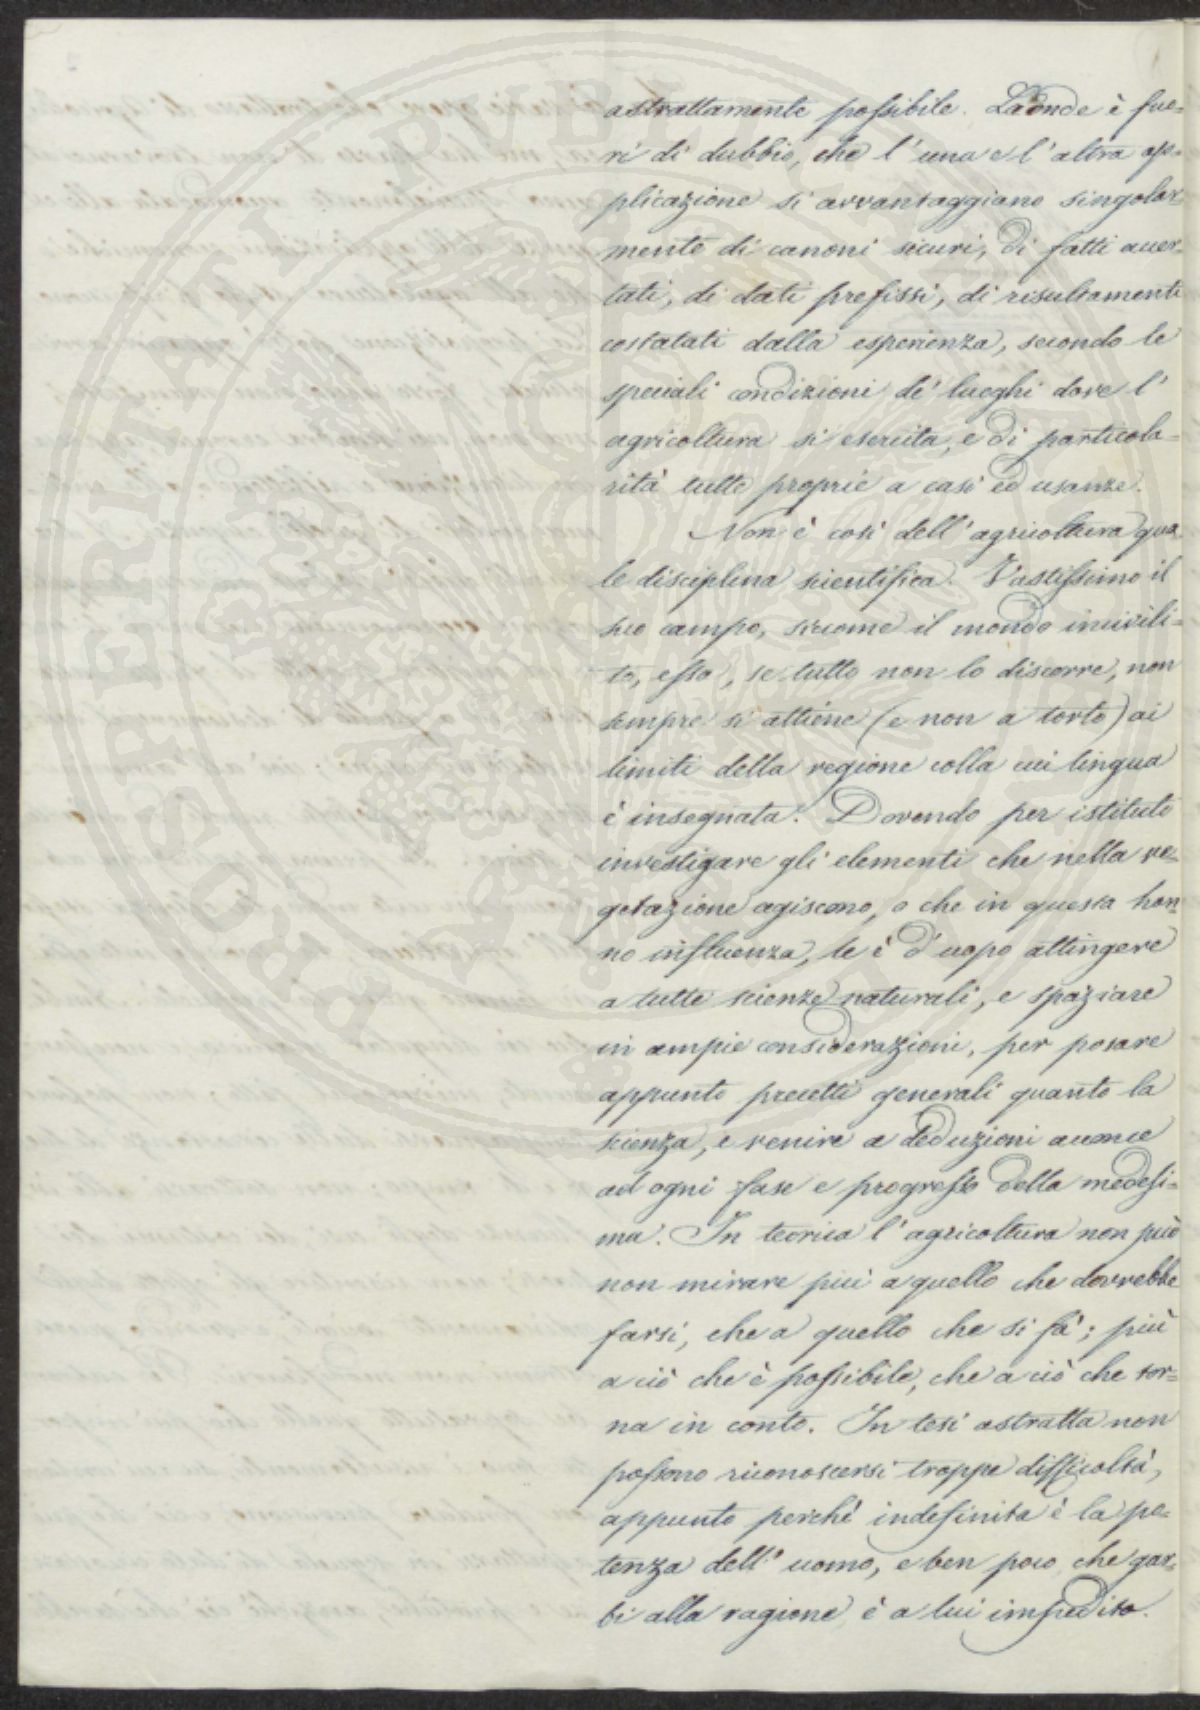 astrattamente possibile. Laonde è fuo-
ri di dubbio, che l'una e l'altra ap-
plicazione si avvantaggiano singolar-
mente di canoni sicuri, di fatti accer-
tati, di dati prefissi, di risultamenti
costatati dalla esperienza, secondo le
speciali condizioni de' luoghi dove l'
agricoltura si esercita, e di particola-
rità tutte proprie a casi ed usanze.
Non è così dell'agricoltura qua-
le disciplina scientifica. Vastissimo il
suo campo, siccome il mondo incivili-
to, essa, se tutto non lo discorre, non
sempre si attiene (e non a torto) ai
limiti della regione colla cui lingua
è insegnata. Dovendo per istituto
investigare gli elementi che nella ve-
getazione agiscono, o che in questa han-
no influenza, le è d'uopo attingere
a tutte scienze naturali, e spaziare
in ampie considerazioni, per posare
appunto precetti generali quanto la
scienza, e venire a deduzioni acconce
ad ogni fase e progresso della medesi-
ma. In teorica l'agricoltura non può
non mirare più a quello che dovrebbe
farsi, che a quello che si fà; più
a ciò che è possibile, che a ciò che tor-
na in conto. In tesi astratta non
possono riconoscersi troppe difficoltà,
appunto perchè indefinita è la po-
tenza dell'uomo, e ben poco che gar-
bi alla ragione è a lui impedito.
PROSPERITATI PUBLICAE